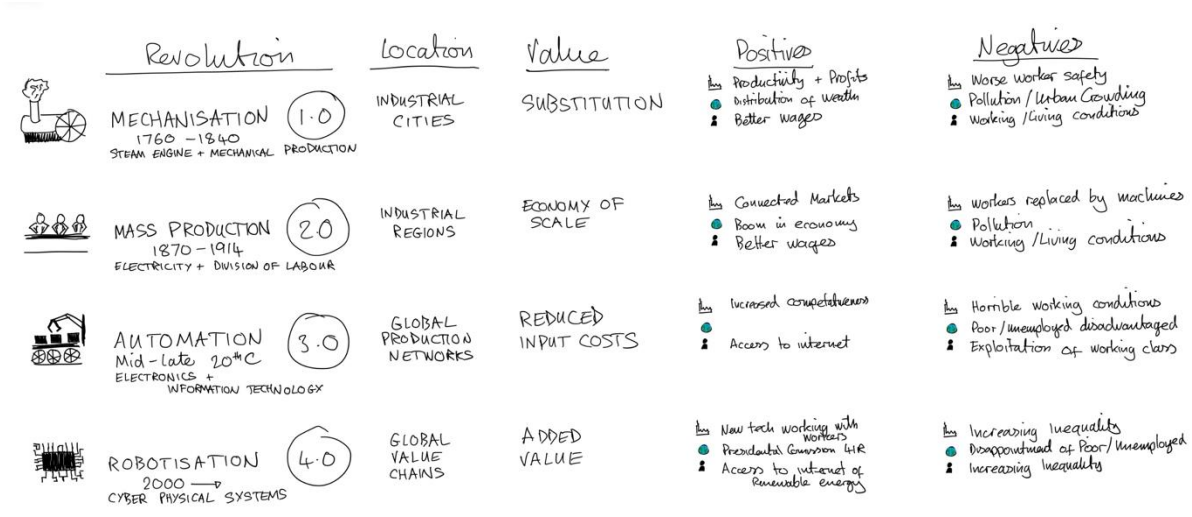 Revolution
Location
Value
Positives
Negatives
MECHANISATION
1.0
1760 - 1840
STEAM ENGINE + MECHANICAL PRODUCTION
INDUSTRIAL
CITIES
SUBSTITUTION
Productivity + Profits
Distribution of Wealth
Better wages
Worse worker safety
Pollution / Urban Crowding
Working / Living conditions
MASS PRODUCTION
2.0
1870 - 1914
ELECTRICITY + DIVISION OF LABOUR
INDUSTRIAL
REGIONS
ECONOMY OF
SCALE
Connected Markets
Boom in economy
Better wages
Workers replaced by machines
Pollution
Working / Living conditions
AUTOMATION
3.0
Mid-late 20thC
ELECTRONICS +
INFORMATION TECHNOLOGY
GLOBAL
PRODUCTION
NETWORKS
REDUCED
INPUT COSTS
Increased competativeness
Access to internet
Horrible working conditions
Poor/unemployed disadvantaged
Exploitation of working class
ROBOTISATION
4.0
2000 →
CYBER PHYSICAL SYSTEMS
GLOBAL
VALUE
CHAINS
ADDED
VALUE
New tech working with
workers
Presidential 4IR
Access to internet of
Renewable energy
Increasing Inequality
Disappointment of Poor/Unemployed
Increasing Inequality